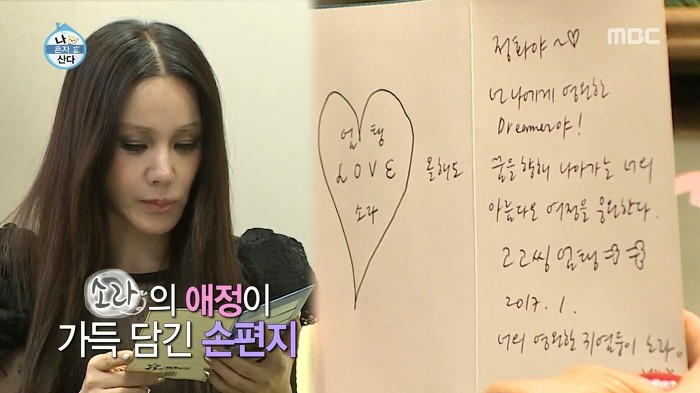 나
혼자
산다
MBC
엄탱
LOVE
소라
올해도
정화야~♡
넌 나에게 영원한
Dreamer야!
꿈을 향해 나아가는 너의
아름다운 여정을 응원한다.
고고씽 엄탱
2017. 1.
너의 영원한 지염둥이 소라
소라의 애정이
가득 담긴 손편지